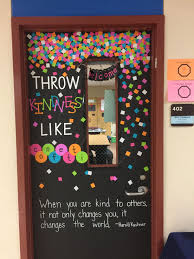 welcome
THROW
KINDNESS
LIKE
confetti
402
When you are kind to others,
it not only changes you, it
changes the world. -Harold Kushner